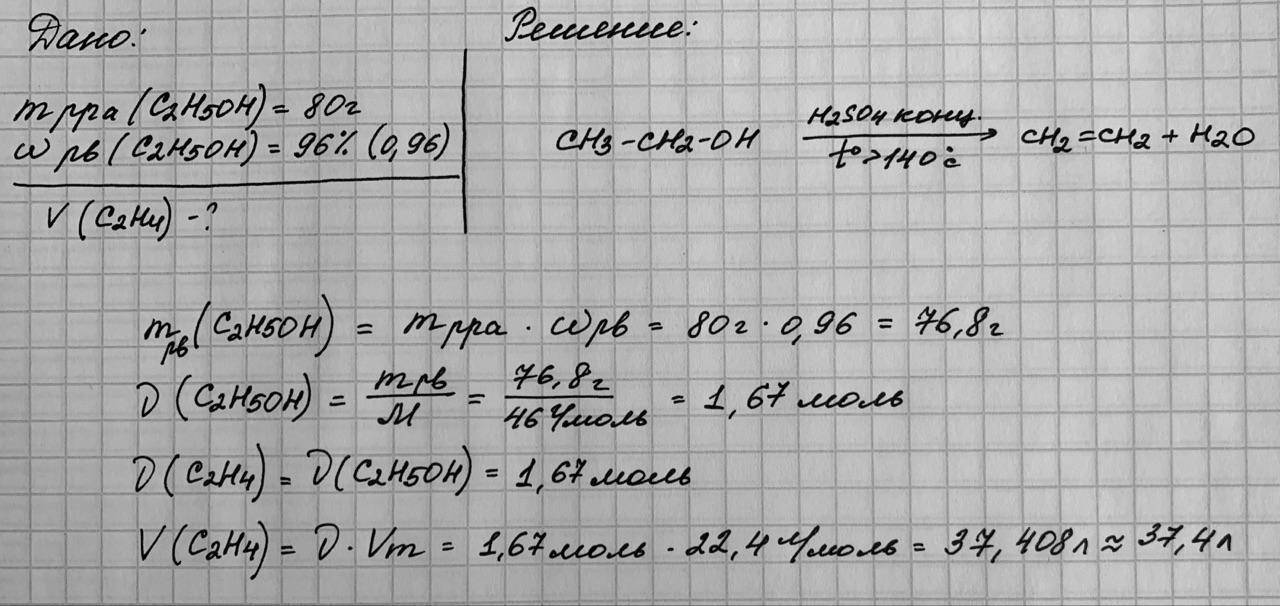 Дано:
Решение:
m рра (C2H5OH) = 80г
ω рв (C2H5OH) = 96% (0,96)
V (C2H4) - ?
CH3-CH2-OH H2SO4 конц. t° > 140°C → CH2=CH2 + H2O
m рв (C2H5OH) = m рра · ω рв = 80г · 0,96 = 76,8г
ν (C2H5OH) = m рв / M = 76,8г / 46 г/моль = 1,67 моль
ν (C2H4) = ν (C2H5OH) = 1,67 моль
V (C2H4) = ν · Vm = 1,67 моль · 22,4 л/моль = 37,408л ≈ 37,4л